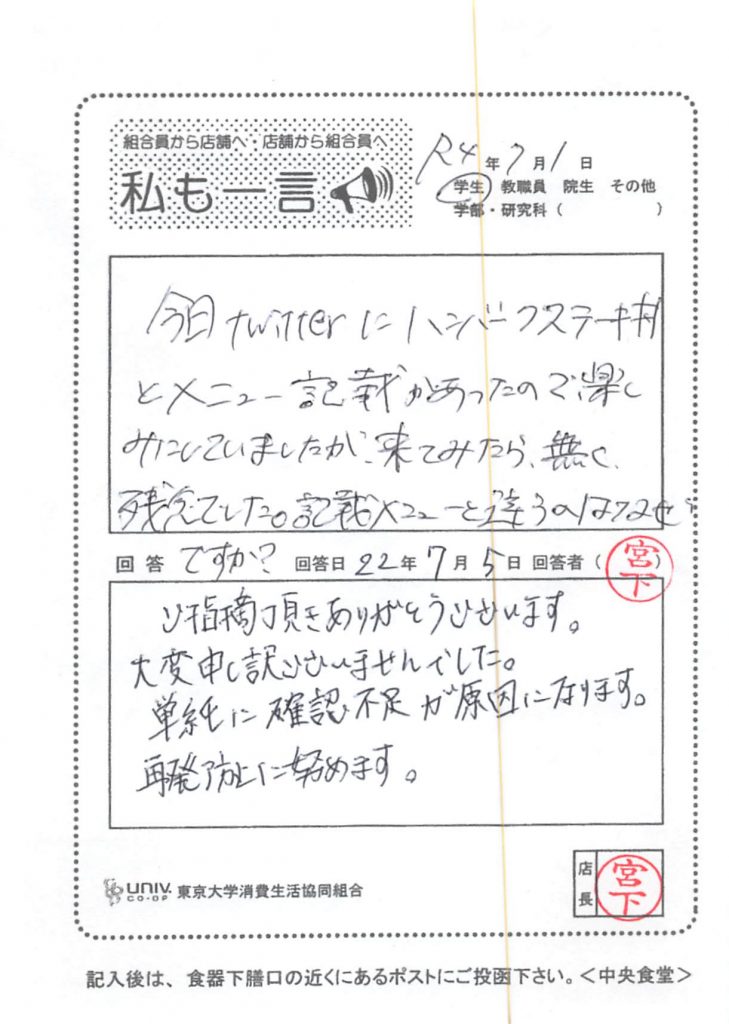 組合員から店舗へ・店舗から組合員へ
私も一言
R4年7月1日
学生 教職員 院生 その他
学部・研究科（　　　　）
今日twitterにハンバーグステーキ丼
とメニュー記載があったので、楽し
みにしていましたが、来てみたら、無く、
残念でした。記載メニューと違うのはなぜ
ですか?
回答 回答日 22年7月5日 回答者（宮下）
ご指摘頂きありがとうございます。
大変申し訳ございませんでした。
単純に確認不足が原因になります。
再発防止に努めます。
店長 宮下
UNIV. CO-OP 東京大学消費生活協同組合
記入後は、食器下膳口の近くにあるポストにご投函下さい。＜中央食堂＞